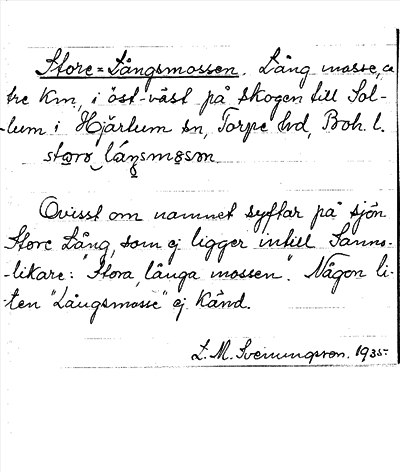 Store-Långsmossen. Lång mosse, ca
tre km, i öst-väst på skogen till Sol-
-lum i Hjärtum sn, Torpe hd, Boh. l.
Ovisst om namnet syftar på sjön
Store Lång, som ej ligger intill. Sanno-
-likare: "Stora, långa mossen". Någon li-
-ten "Långsmosse" ej känd.
L. M. Svenungsson. 1935-